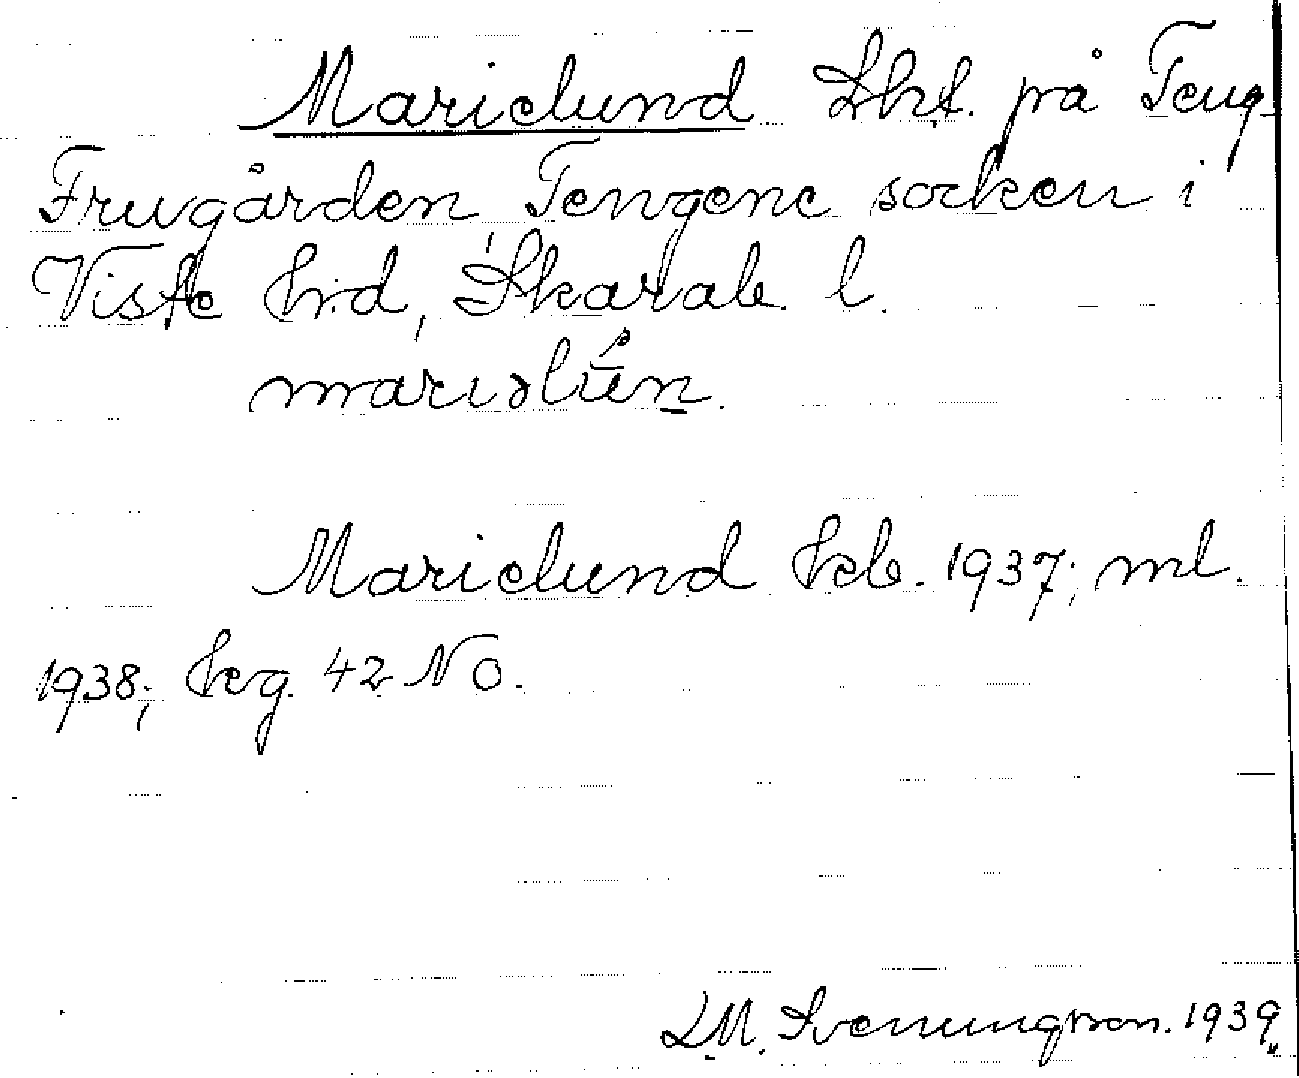 Marielund Lht. på Teng
Frugården, Tengene socken i
Viste hd, Skarab. l.
mariəlún.
Marielund kb. 1937; ml.
1938; kg. 42 NO.
LM. Svenungsson. 1939